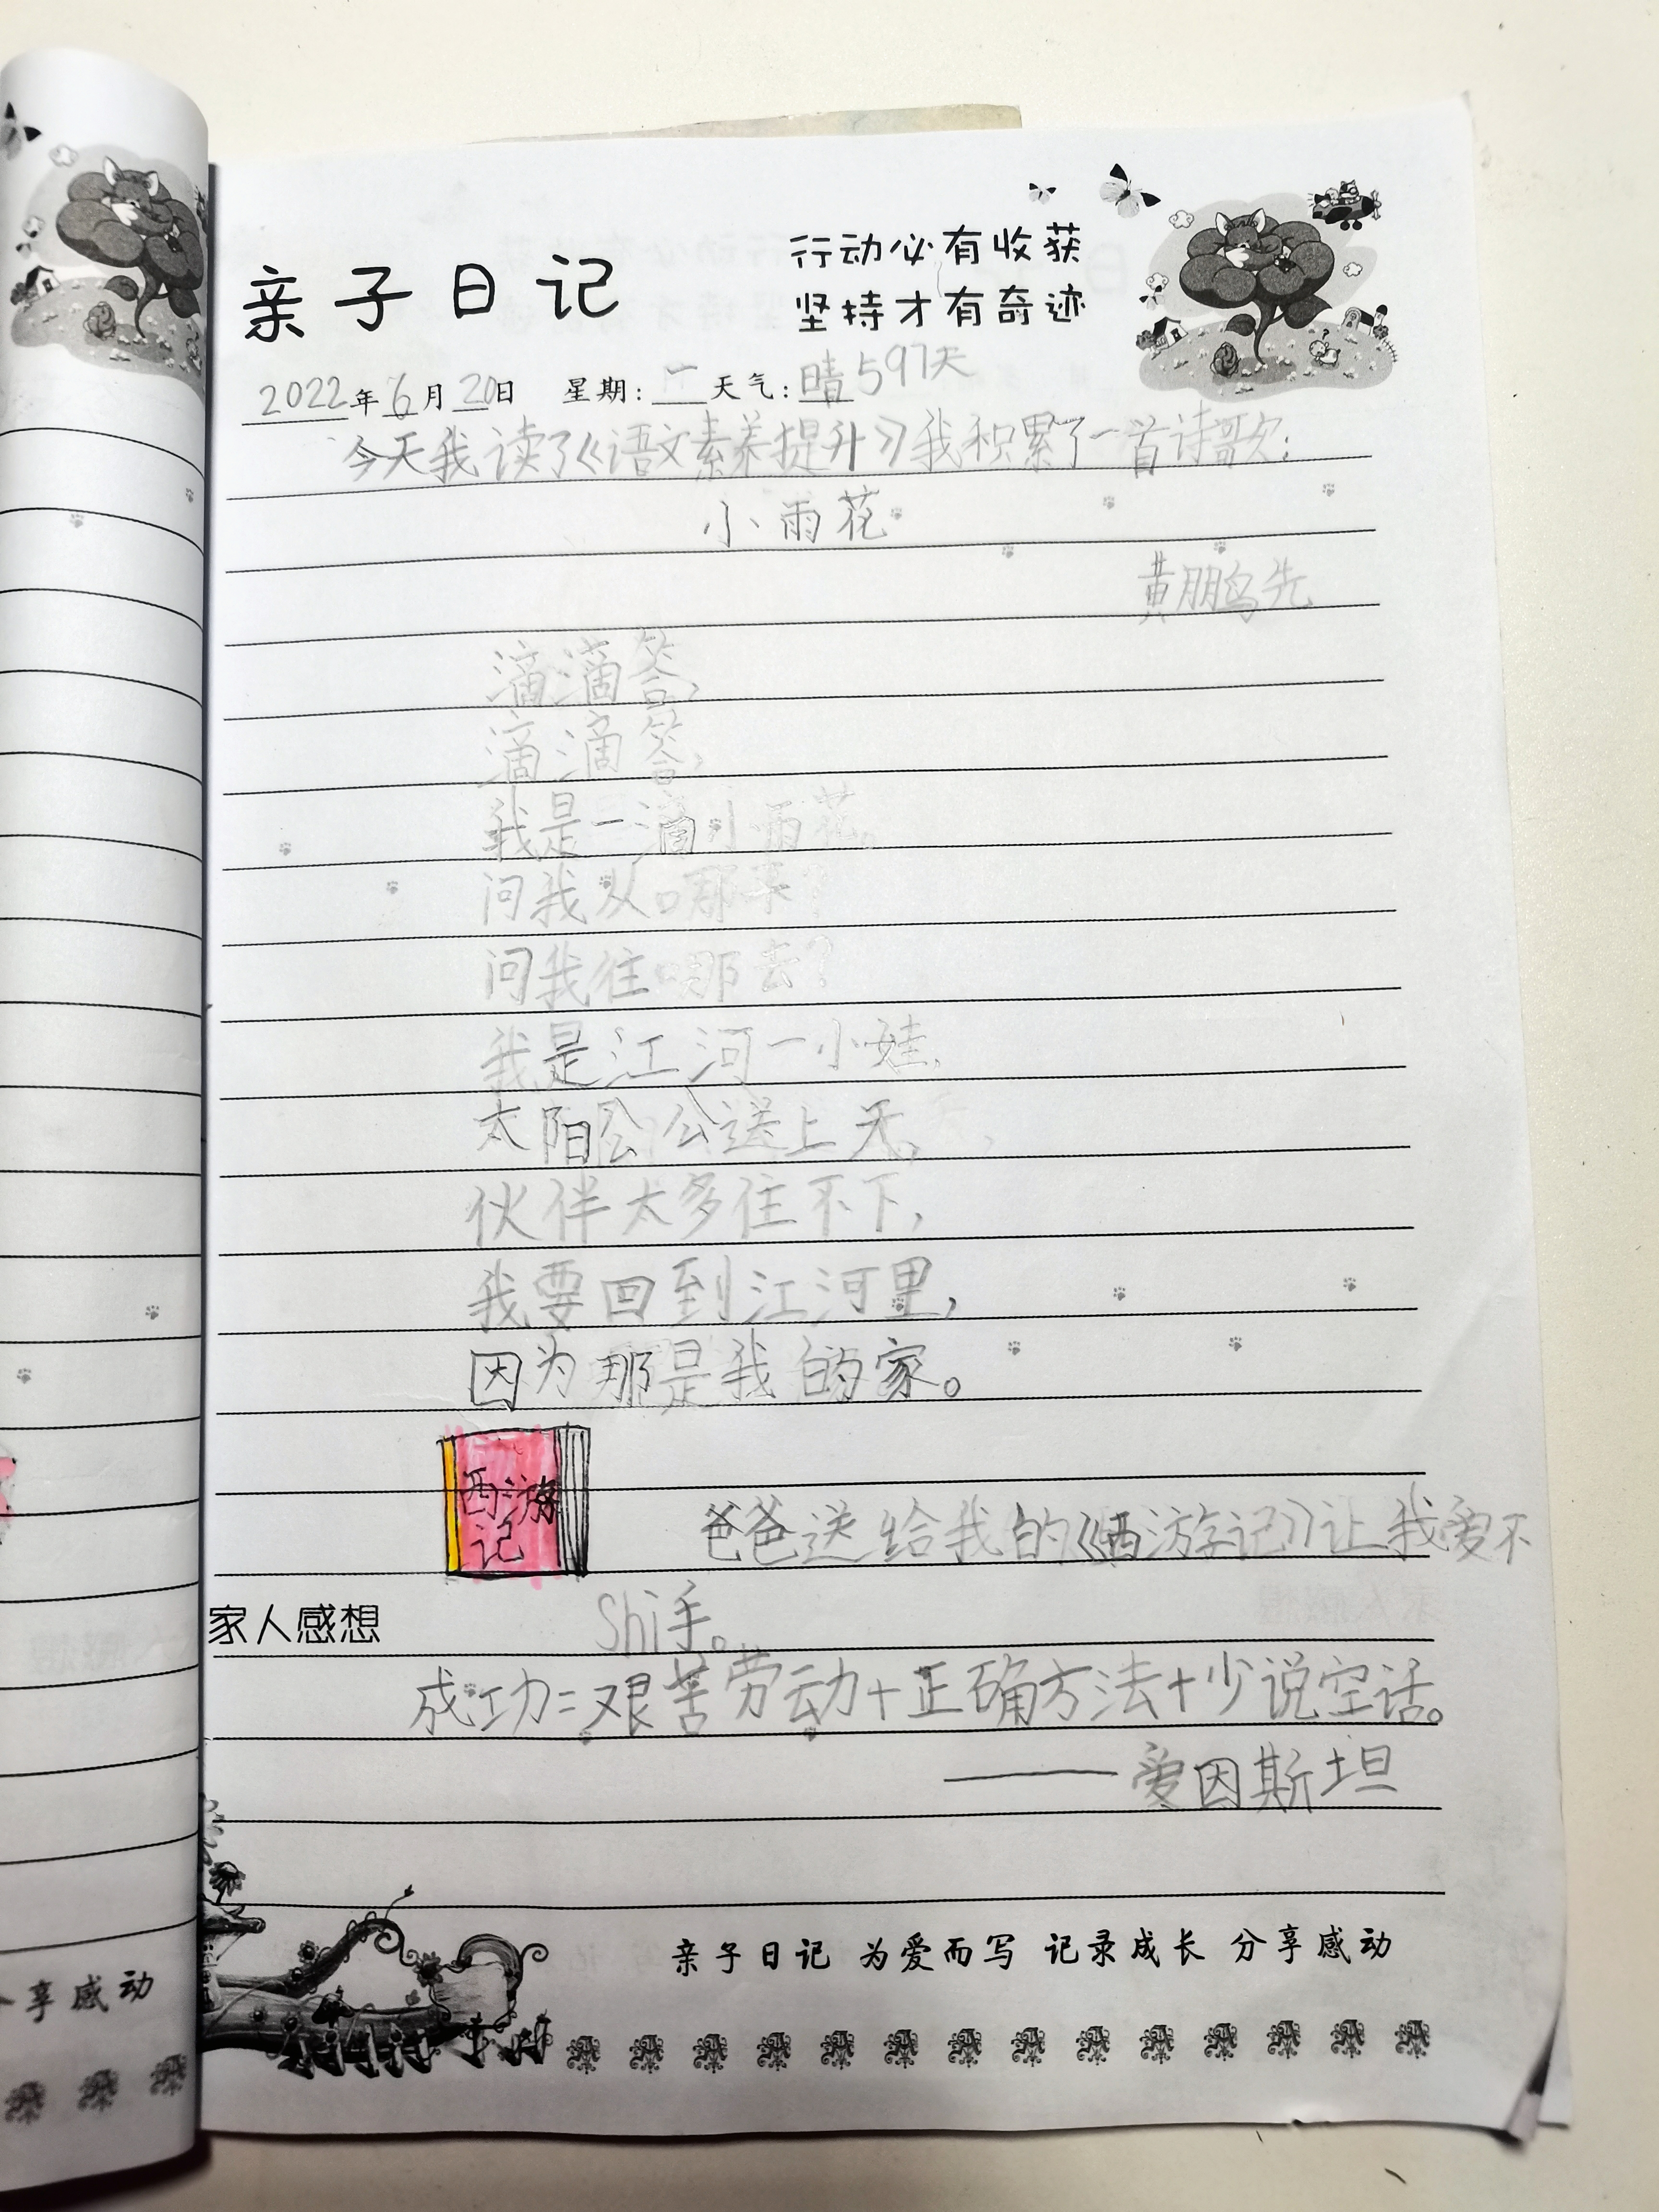 亲子日记
行动必有收获
坚持才有奇迹
2022年6月20日 星期:一 天气:晴 597天
今天我读了《语文素养提升》我积累了一首诗歌:
小雨花
黄鹏先
滴滴答,
滴滴答,
我是一滴小雨花。
问我从哪来?
问我往哪去?
我是江河一小娃,
太阳公公送上天,
伙伴太多住不下,
我要回到江河里,
因为那是我的家。
西游
记
爸爸送给我的《西游记》让我爱不
家人感想 Shi手。
成功=艰苦劳动+正确方法+少说空话。
——爱因斯坦
亲子日记 为爱而写 记录成长 分享感动
分享感动